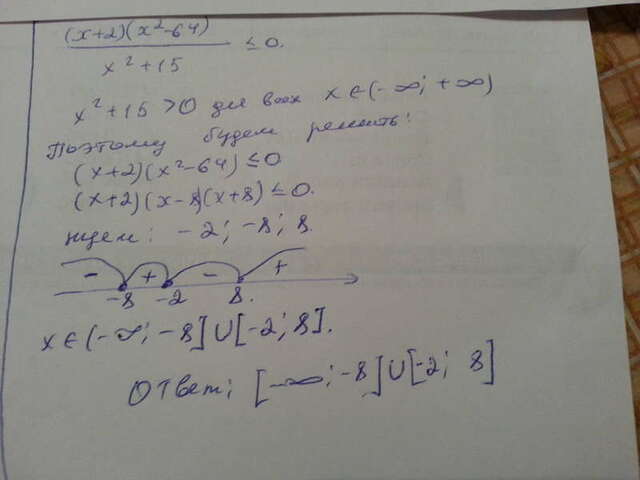 (x+2)(x²-64)
/ x²+15 ≤ 0.
x²+15 >0 для всех x∈(-∞; +∞)
Поэтому будем решить:
(x+2)(x²-64) ≤ 0
(x+2)(x-8)(x+8) ≤ 0.
-2; -8; 8.
- + - +
-8 -2 8.
x∈(-∞; -8]∪[-2; 8].
Ответ; [-∞; -8]∪[-2; 8]